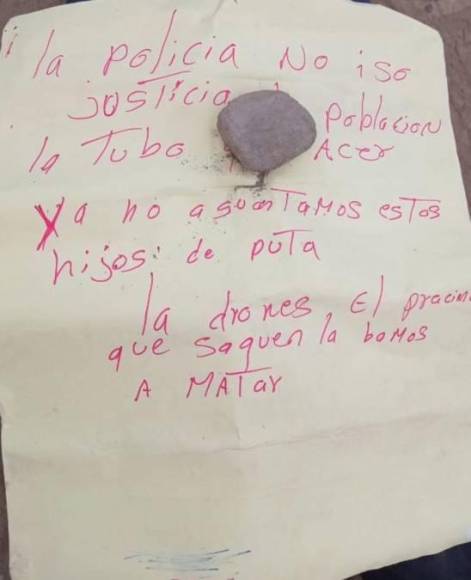 la policia No iso
justicia
Poblacion
la Tubo
Acer
Ya no aguantamos estos
hijos: de puta
la drones, El pracim
que saquen la bamos
A MATar